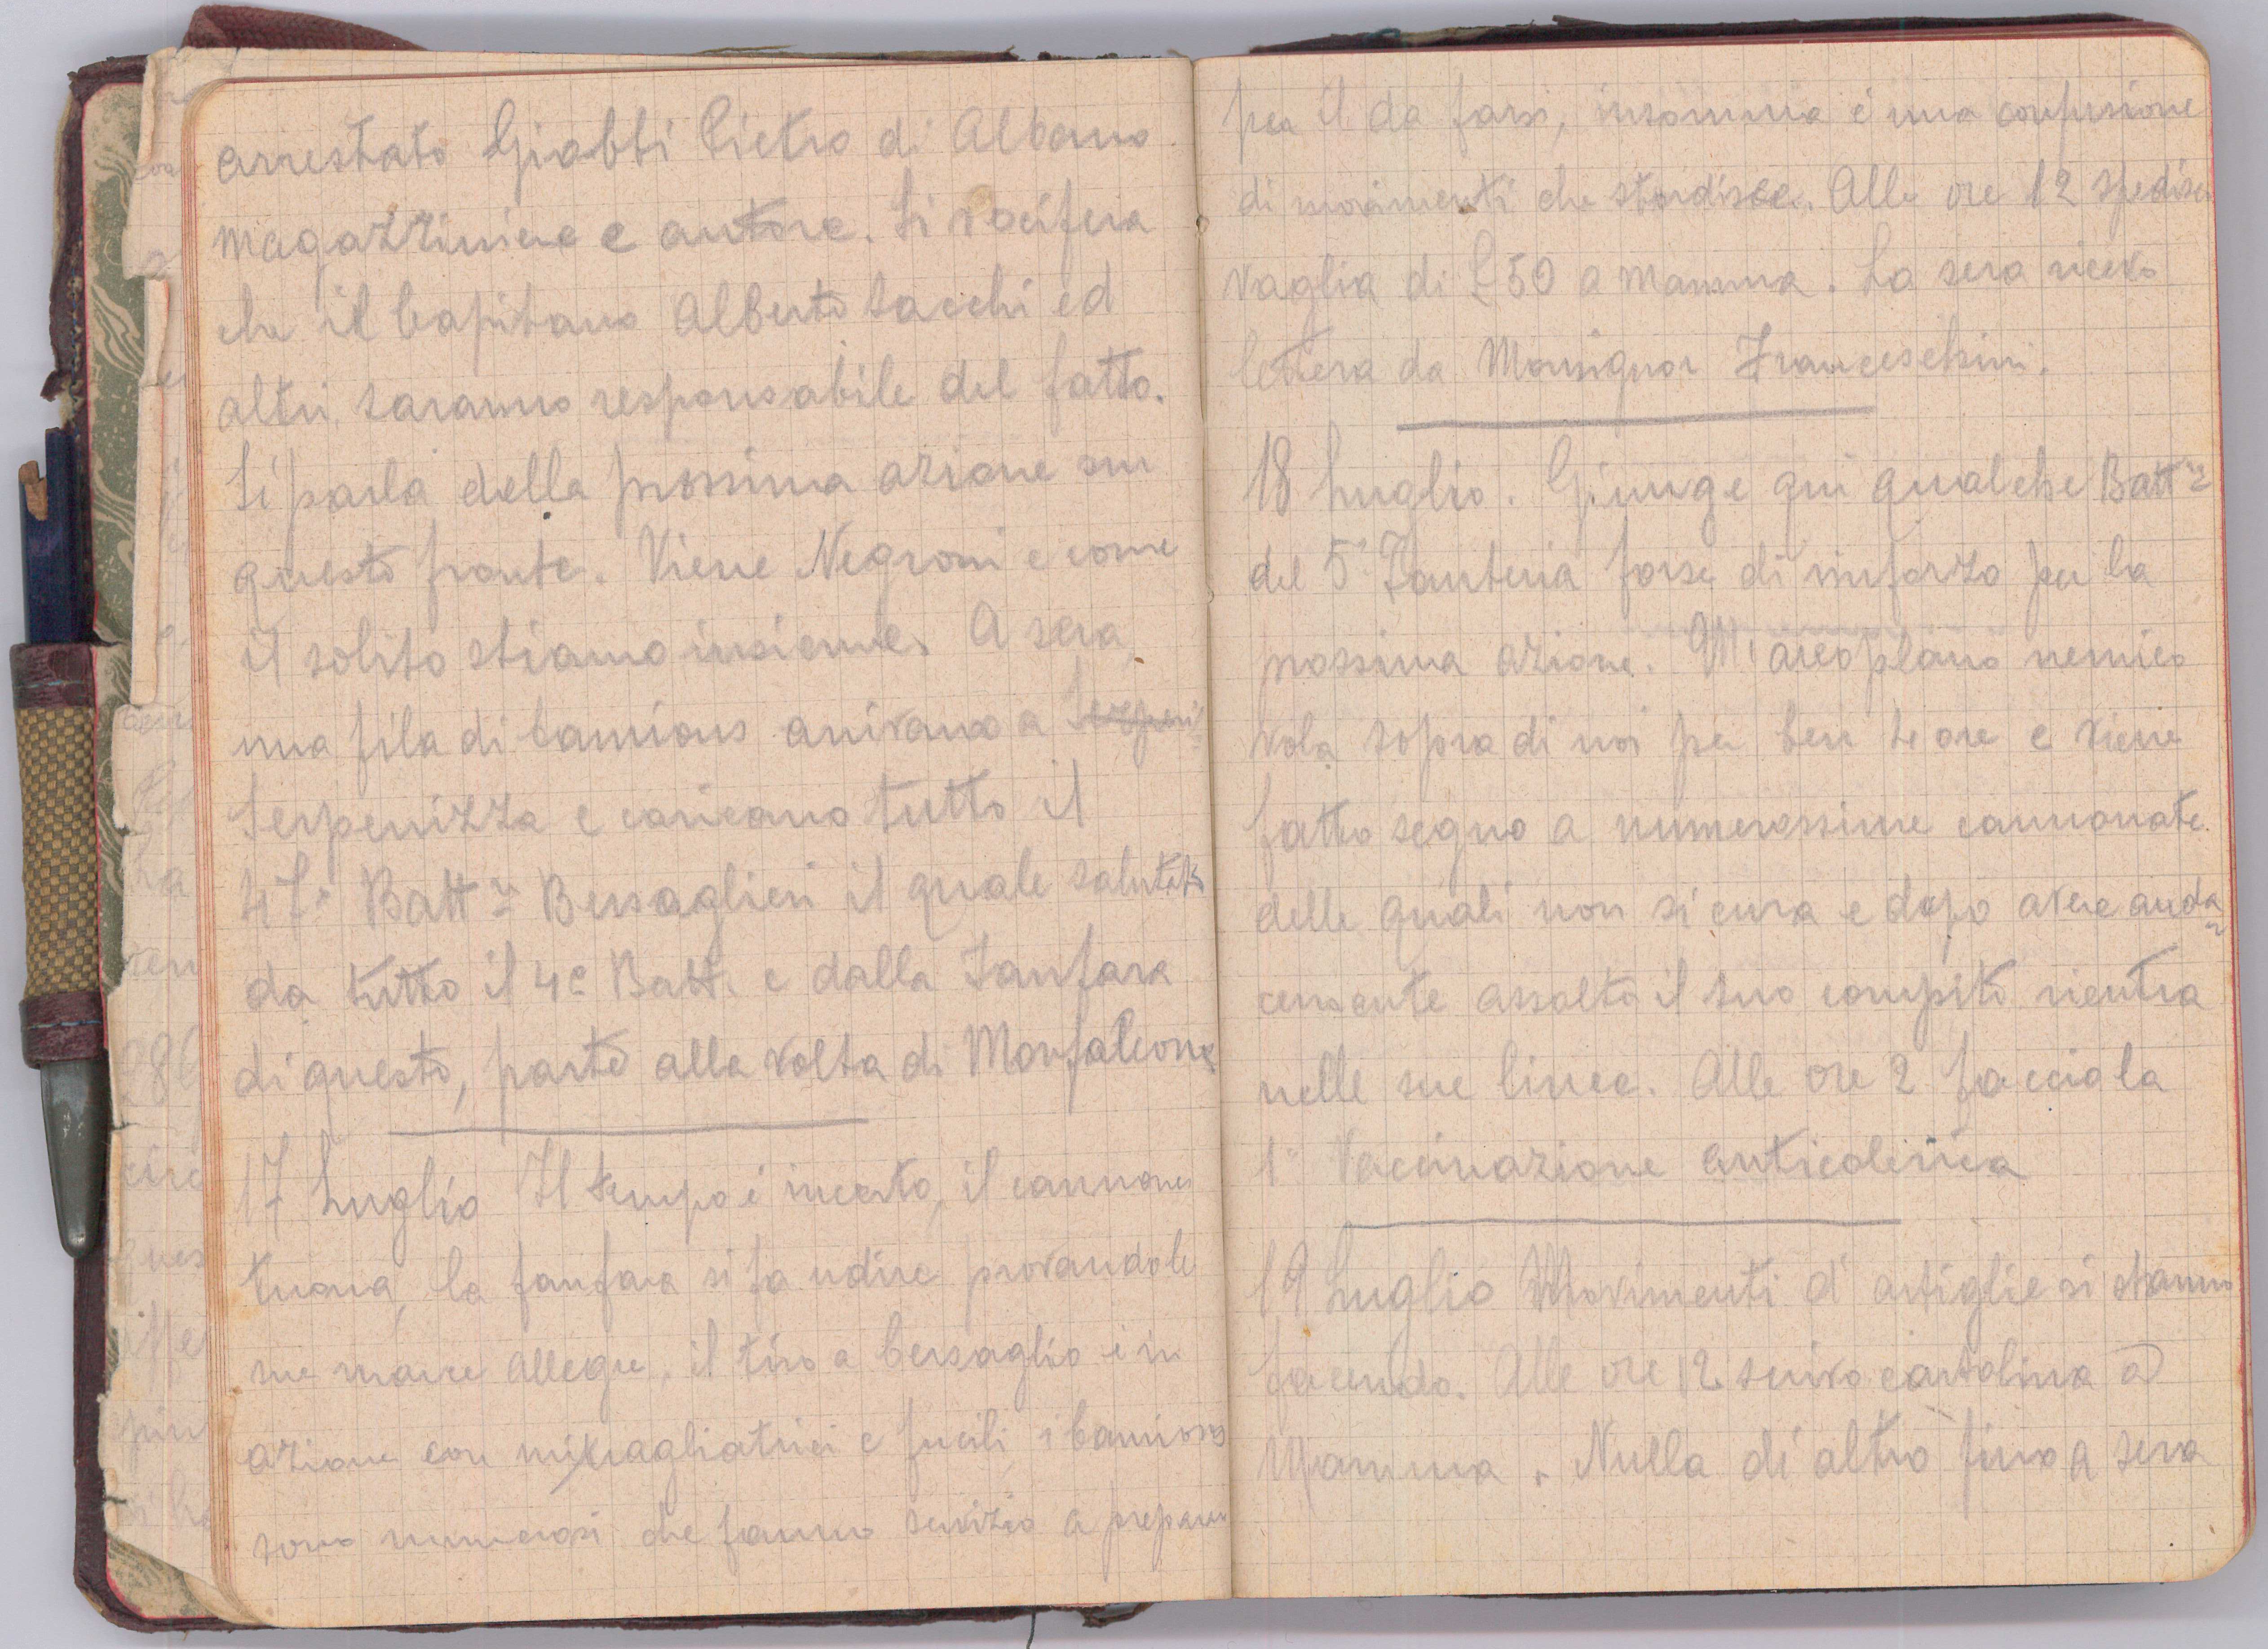 arrestato Giobbi Pietro di Albano
magazziniere e autore. Si vocifera
che il Capitano Alberto Sacchi ed
altri, saranno responsabile del fatto.
Si parla della prossima azione su
questo fronte. Viene Negroni e come
il solito stiamo insieme. A sera,
una fila di Camions arrivano a
Serpenizza e caricano tutto il
47° Battne Bersaglieri il quale salutato
da tutto il 4° Batt. e dalla Fanfara
di questo, parte alla volta di Monfalcone
17 Luglio Il tempo è incerto, il cannone
tuona, la fanfara si fa udire provando le
sue marce allegre, il tiro a bersaglio è in
azione con mitragliatrici e fucili i Camions
sono numerosi che fanno servizio a preparare
per il da farsi, insomma è una confusione
di movimenti che stordisce. Alle ore 12 spedisco
vaglia di £50 a Mamma. La sera ricevo
lettera da Monsignor Franceschini.
18 Luglio. Giunge qui qualche Battne
del 5° Fanteria forse di rinforzo per la
prossima azione. Un' areoplano nemico
vola sopra di noi per ben 4 ore e viene
fatto segno a numerossime cannonate.
delle quali non si cura e dopo avere auda
cemente assolto il suo compito rientra
nelle sue linee. Alle ore 2 faccio la
1ª Vaccinazione anticolerica
19 Luglio Movimenti d'artiglie si stanno
facendo. Alle ore 12 scrivo cartolina a
Mamma. Nulla di altro fino a sera